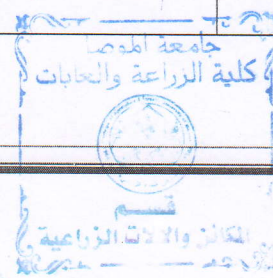 جامعة الموصل
كلية الزراعة والغابات
قسم
المكائن والالات الزراعية